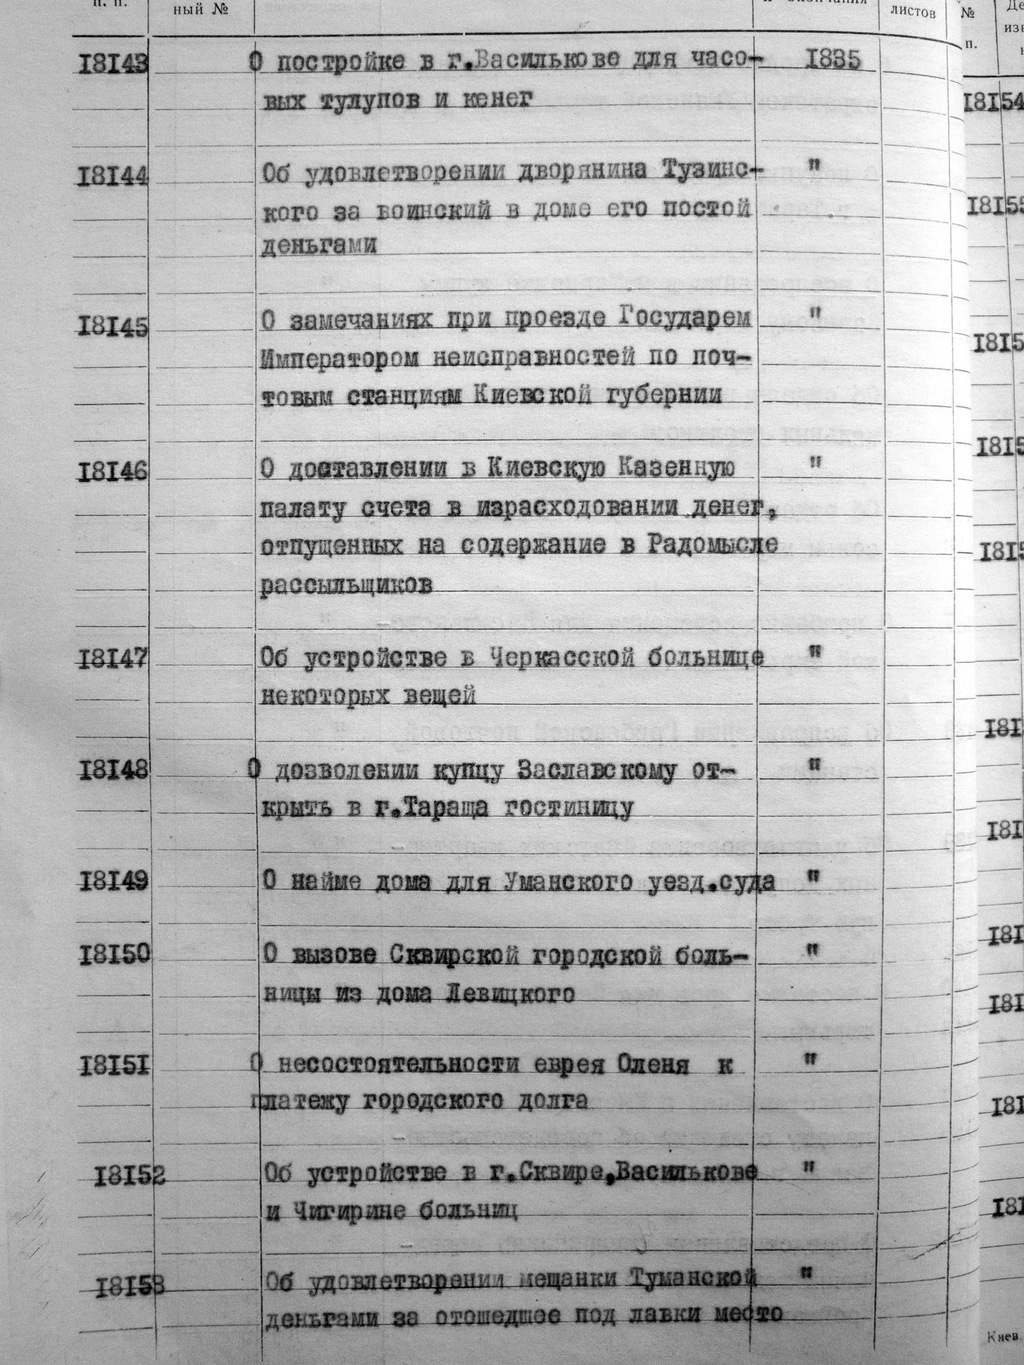 п. п.
ный №
и окончания
листов
№
п.
18143 О постройке в г.Василькове для часо- 1835
вых тулупов и кенег
18144 Об удовлетворении дворянина Тузинс- "
кого за воинский в доме его постой
деньгами
18145 О замечаниях при проезде Государем "
Императором неисправностей по поч-
товым станциям Киевской губернии
18146 О доставлении в Киевскую Казенную "
палату счета в израсходовании денег,
отпущенных на содержание в Радомысле
рассыльщиков
18147 Об устройстве в Черкасской больнице "
некоторых вещей
18148 О дозволении купцу Заславскому от- "
крыть в г.Тараща гостиницу
18149 О найме дома для Уманского уезд.суда "
18150 О вызове Сквирской городской боль- "
ницы из дома Левицкого
18151 О несостоятельности еврея Оленя к "
платежу городского долга
18152 Об устройстве в г.Сквире,Василькове "
и Чигирине больниц
18153 Об удовлетворении мещанки Туманской "
деньгами за отошедшее под лавки место
18154
18155
Киев.